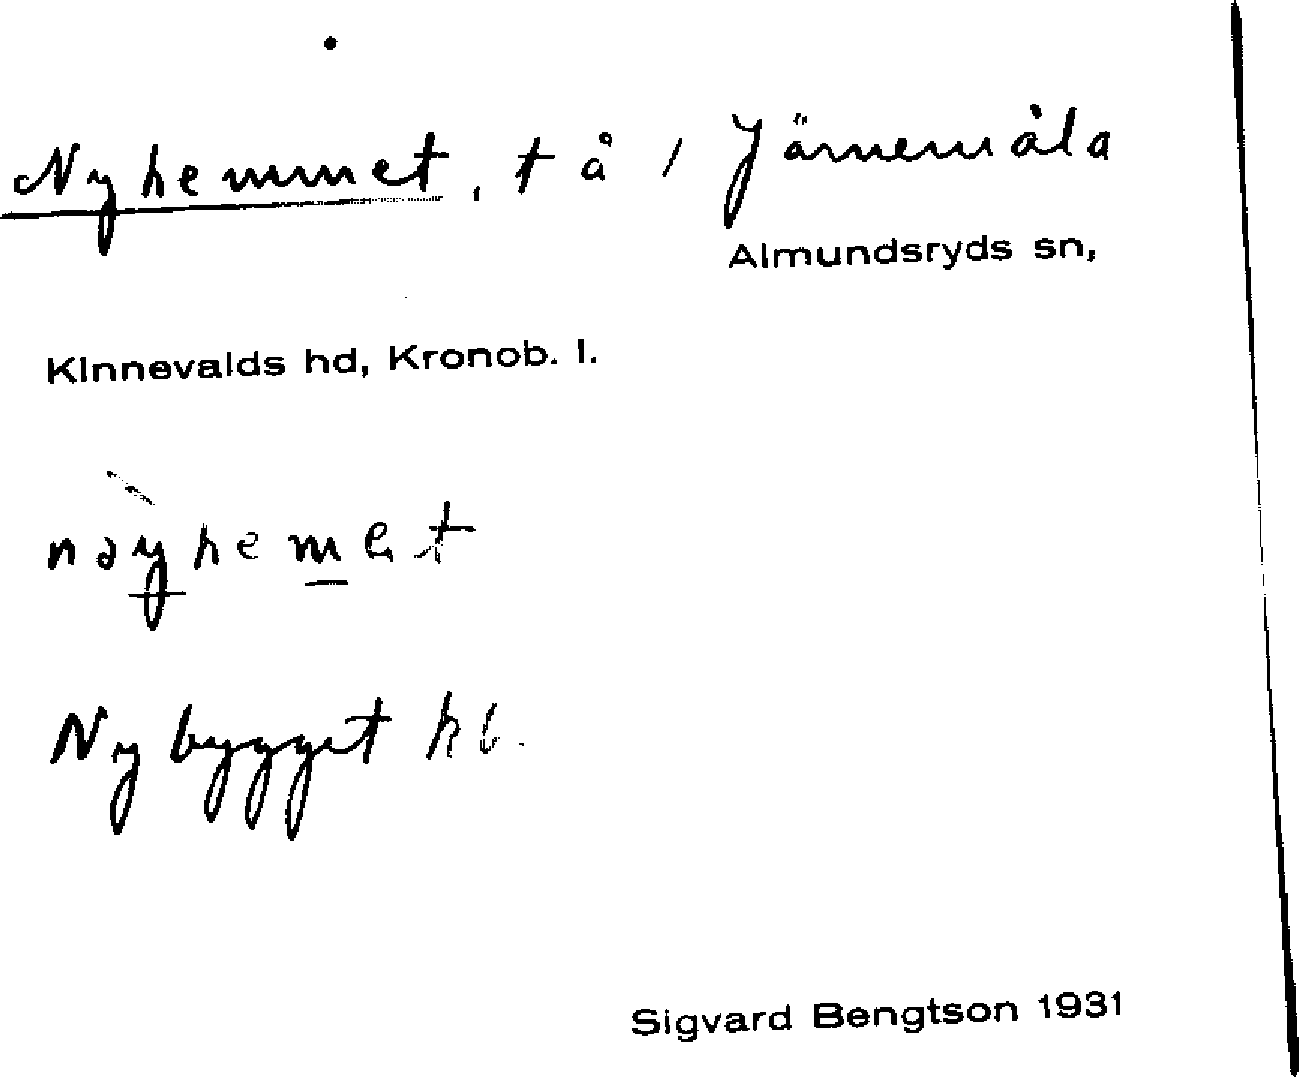 Nyhemmet, t å / Järnemåla
Almundsryds sn,
Kinnevalds hd, Kronob. l.
nəyhemet
Nybygget hb.
Sigvard Bengtson 1931